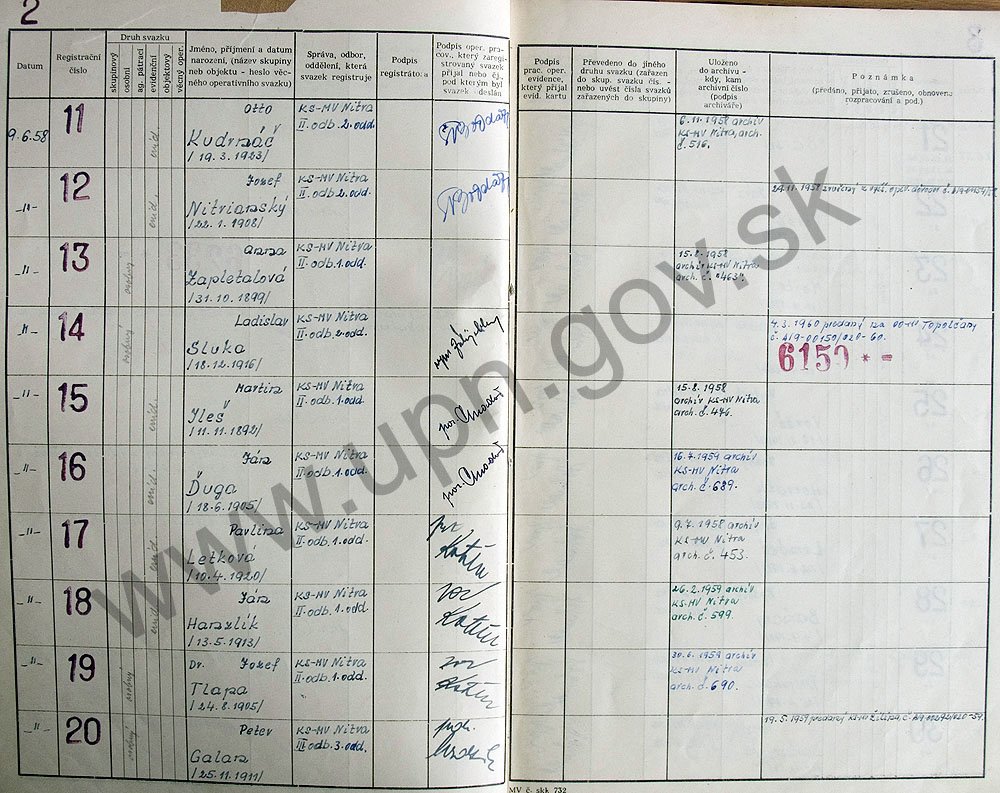 2
Datum
Registrační číslo
Druh svazku
skupinový
osobní
ag. pátrací
evidenční
objektový
věcný oper.
Jméno, příjmení a datum
narození, (název skupiny
neb objektu - heslo věc-
ného operativního svazku)
Správa, odbor,
oddělení, která
svazek registruje
Podpis
registrátora
Podpis oper. pra-
cov., který zareg-
istrovaný svazek
přijal nebo čj.,
pod kterým byl
svazek odeslán
Podpis
prac. oper.
evidence,
který přijal
evid. kartu
Převedeno do jiného
druhu svazku (zařazen
do skup. svazku čís. -
nebo uvést čísla svazků
zařazených do skupiny)
Uloženo
do archivu -
kdy, kam
archivní číslo
(podpis
archiváře)
Poznámka
(předáno, přijato, zrušeno, obnoveno
rozpracování a pod.)
9.6.58
11
evid.
Otto
Kudrnáč
/19.3.1923/
KS-MV Nitra
II. odb. 2. odd.
6.11.1958 archív
KS-MV Nitra, arch.
č. 516.
-"-
12
evid.
Jozef
Nitrianský
/22.1.1908/
KS-MV Nitra
II. odb. 2. odd.
24.11.1958
-"-
13
osobný
Anna
Zapletalová
/31.10.1899/
KS-MV Nitra
II. odb. 1. odd.
15.8.1958
archív KS-MV Nitra
arch. č. 463.
-"-
14
osobný
Ladislav
Sluka
/18.12.1916/
KS-MV Nitra
II. odb. 2. odd.
7.3.1960 predaný na OO-MV Topolčany
č. A/9-00150/020-60.
6150 * -
-"-
15
evid.
Martin
Ileš
/11.11.1892/
KS-MV Nitra
II. odb. 1. odd.
15.8.1958
archív KS-MV Nitra
arch. č. 476.
-"-
16
evid.
Ján
Ďuga
/18.6.1905/
KS-MV Nitra
II. odb. 1. odd.
16.7.1959 archív
KS-MV Nitra
arch. č. 689.
-"-
17
evid.
Pavlína
Letková
/10.4.1920/
KS-MV Nitra
II. odb. 1. odd.
9.7.1958 archív
KS-MV Nitra
arch. č. 453.
-"-
18
evid.
Ján
Hanzlík
/13.5.1913/
KS-MV Nitra
II. odb. 1. odd.
26.2.1959 archív
KS-MV Nitra
arch. č. 599.
-"-
19
osobný
Dr. Jozef
Tlapa
/24.8.1905/
KS-MV Nitra
II. odb. 1. odd.
30.6.1959 archív
KS-MV Nitra
arch. č. 690.
-"-
20
osobný
Peter
Galan
/25.11.1911/
KS-MV Nitra
III. odb. 3. odd.
19.5.1959
MV č. skk 732
www.upn.gov.sk